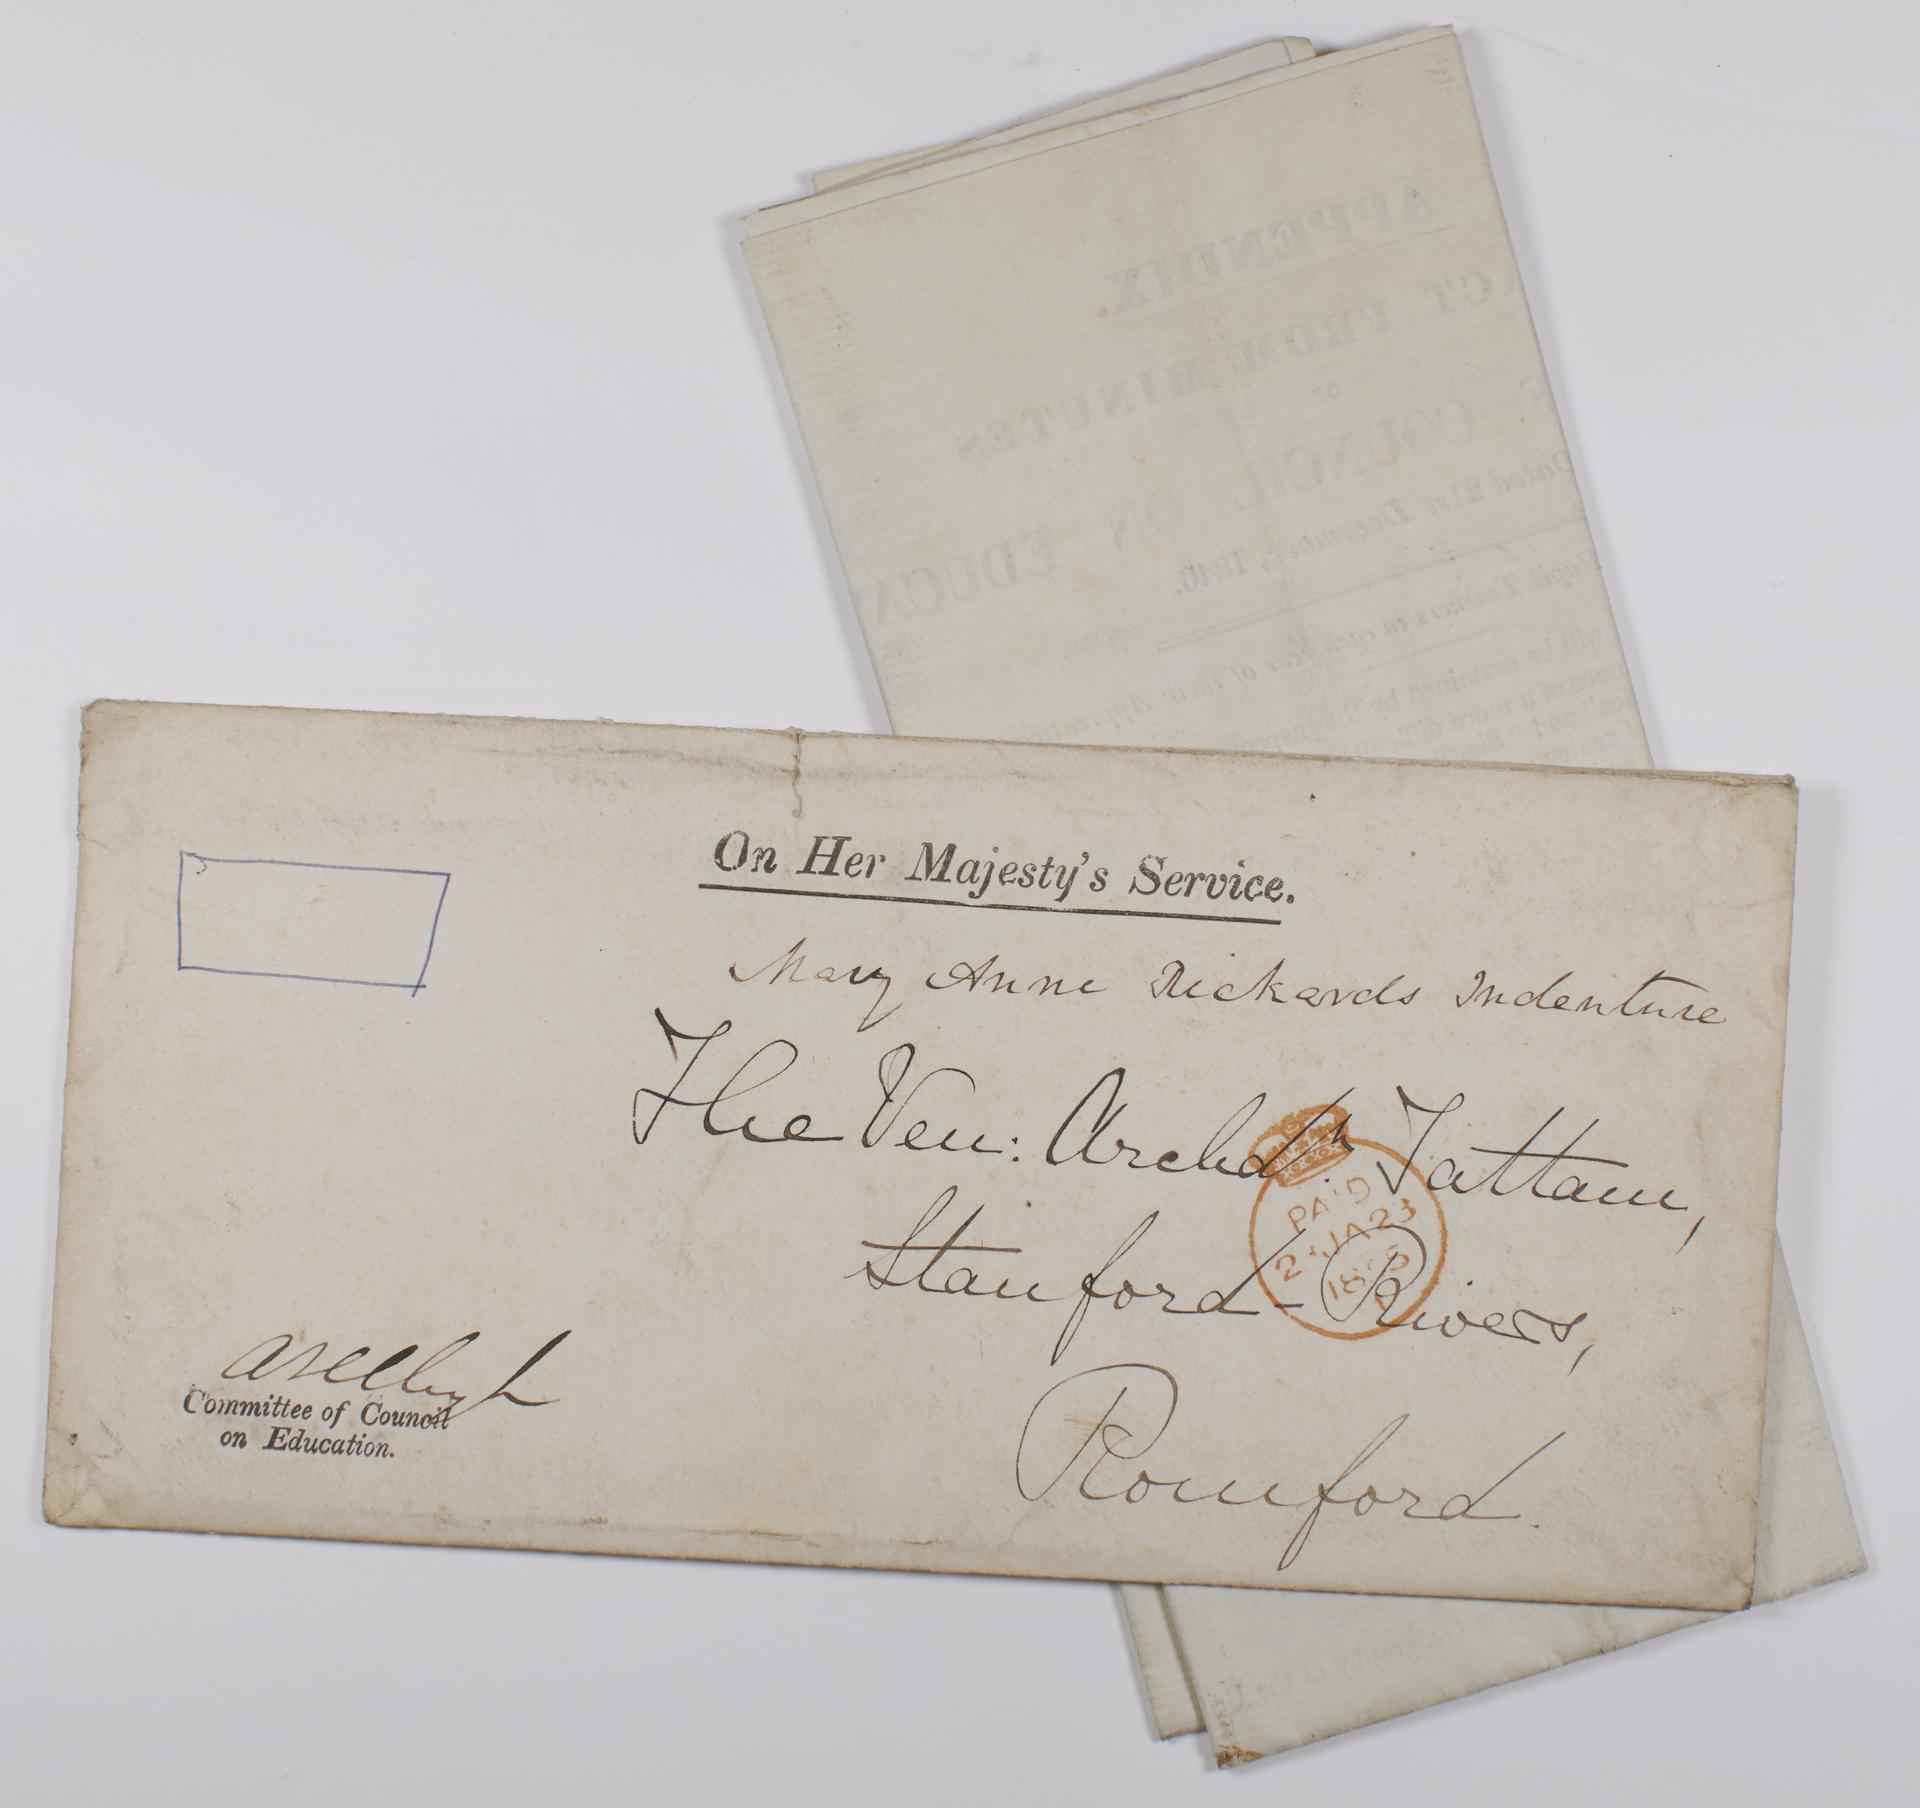 APPENDIX.
ACT FROM MINUTES
OF
COUNCIL ON EDUCA
Dated 21st December, 1846.
Pupil Teachers in each Year of their
will be examined by
ance of a more
On Her Majesty's Service.
Mary Anne Rickards Indenture
The Ven: Archdn. Tattam,
Stanford-Rivers,
Romford.
PAID
JA 23
Committee of Council
on Education.